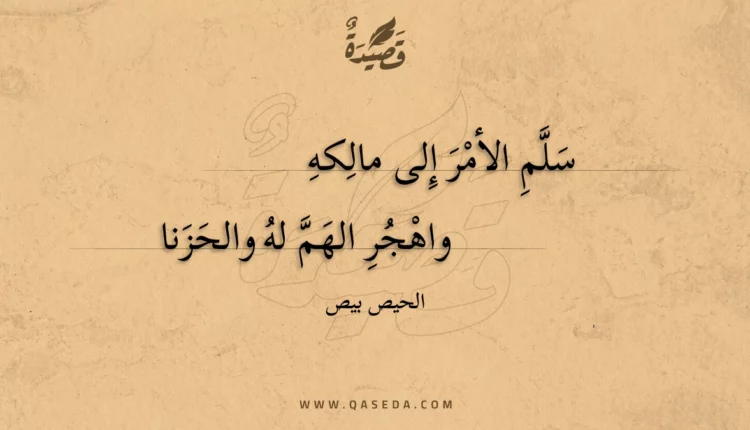 قَصِيْدَةٌ
سَلَّمِ الأمْرَ إِلى مالِكهِ
واهْجُرِ الهَمَّ لهُ والحَزَنا
الحيص بيص
WWW.QASEDA.COM